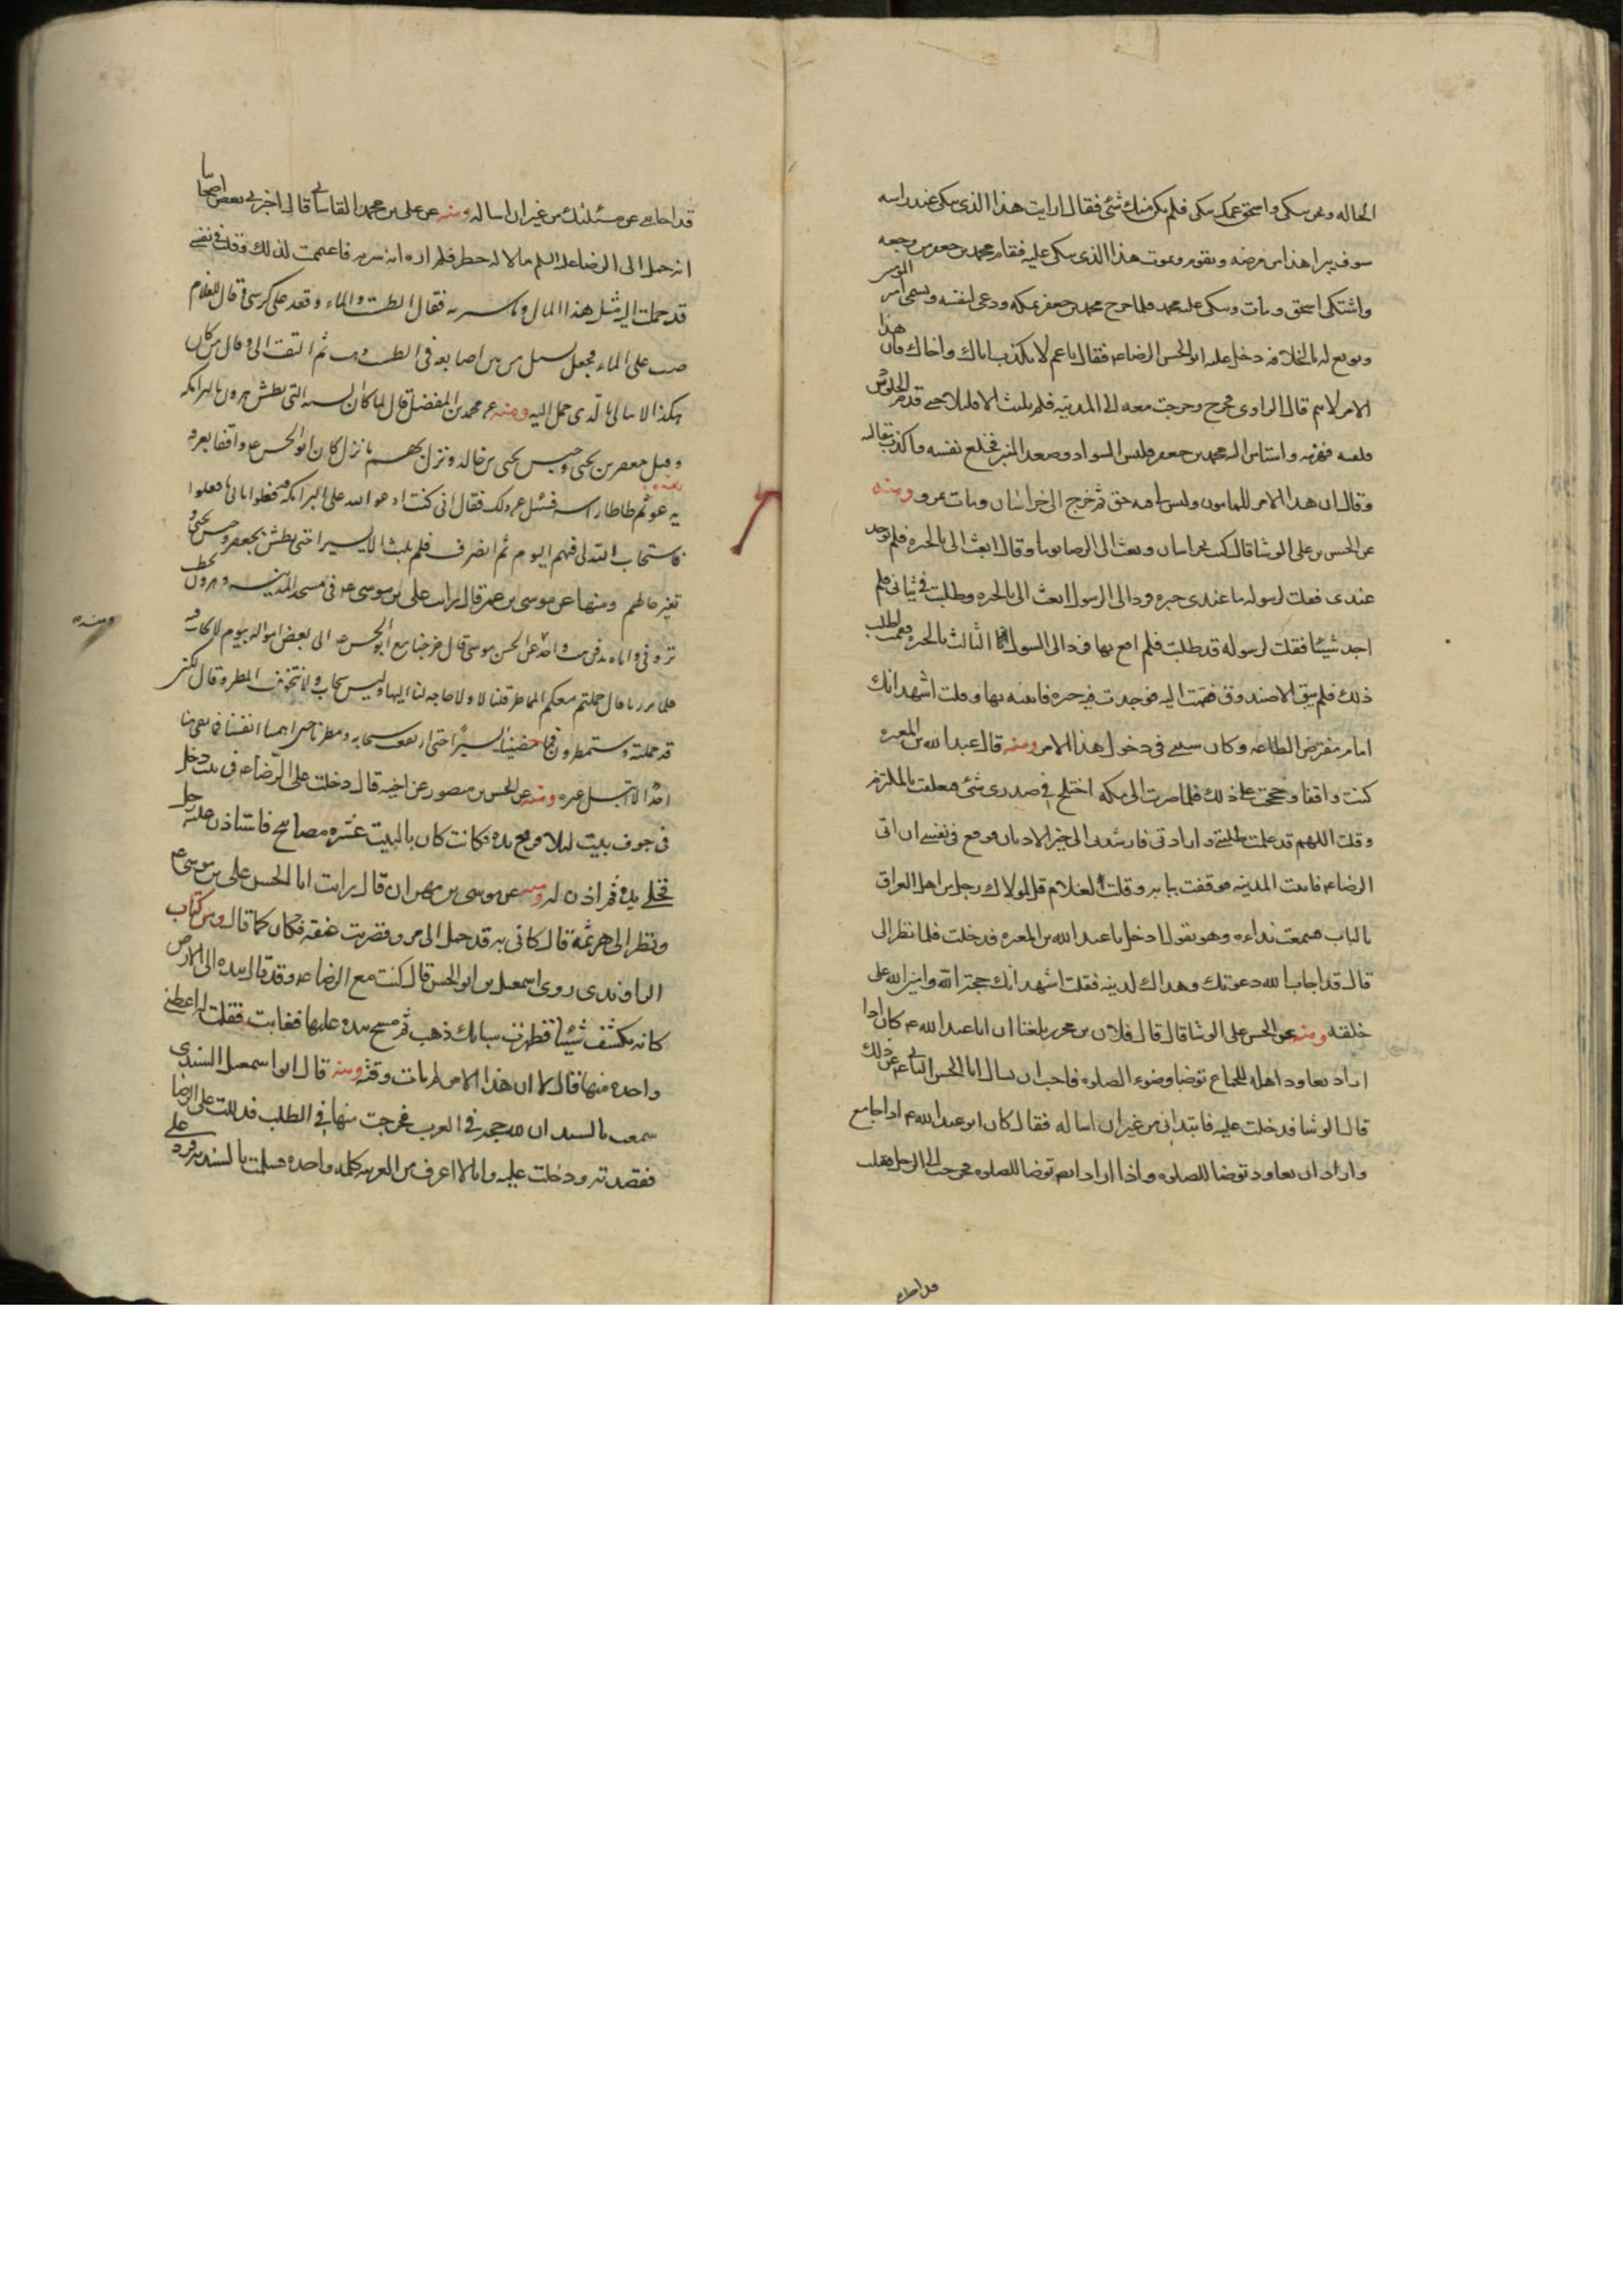 الحاله ونحن نبكى واسحق عمك يبكى فلم يكن منك شئ فقال ارايت هذا الذى يبكى عند راسه
سوف يبرا هذا من مرضه ويقوم ويموت هذا الذى يبكى عليه فقام محمد بن جعفر من وجعه
واشتكى اسحق ومات وبكى عليه محمد فلما خرج محمد بن جعفر بمكه ودعى لنفسه وتسمى امير المومنين
وبويع له بالخلافه دخل عليه ابو الحسن الرضا ع فقال يا عم لا تكذب اباك واخاك فان هذا
الامر لا يتم قال الراوى فخرج وخرجت معه الى المدينه فلم يلبث الا قليلا حتى قدم الجلودى
فلقيه فهزمه واستامن اليه محمد بن جعفر فلبس السواد وصعد المنبر فخلع نفسه واكذب مقالته
وقال ان هذا الامر للمامون وليس لى فيه حق ثم خرج الى خراسان ومات بمرو ومنه
عن الحسن بن على الوشا قال كنت بخراسان وبعث الى الرضا يوما وقال ابعث الى بالحبره فلم توجد
عندى فقلت لرسوله ما عندى حبره فرد الى الرسول ابعث الى بالحبره وطلبت فى ثيابى فلم
اجد شيئا فقلت لرسوله قد طلبت فلم اقع بها فرد الى الرسول الثالث بالحبره فقمت لطلب
ذلك فلم يبق الا صندوق فقمت اليه فوجدت فيه حبره فاتيته بها وقلت اشهد انك
امام مفترض الطاعه وكان سببى فى دخول هذا الامر ومنه قال عبد الله بن المغيره
كنت واقفا وحججت على ذلك فلما صرت الى مكه اختلج فى صدرى شئ فتعلقت بالملتزم
وقلت اللهم قد علمت طلبتى وارادتى فارشدنى الى خير الاديان فوقع فى نفسى ان اتى
الرضا ع فاتيت المدينه فوقفت ببابه وقلت للغلام قل لمولاك رجل من اهل العراق
بالباب فسمعت نداءه وهو يقول ادخل يا عبد الله بن المغيره فدخلت فلما نظر الى
قال قد اجاب الله دعوتك وهداك لدينه فقلت اشهد انك حجة الله وامين الله على
خلقه ومنه عن الحسن على الوشا قال قال فلان بن محرر بلغنا ان ابا عبد الله ع كان اذا
اراد يعاود اهله للجماع توضا وضوء الصلوه فاحب ان تسال ابا الحسن الثانى ع عن ذلك
قال الوشا فدخلت عليه فابتدانى من غير ان اساله فقال كان ابو عبد الله ع اذا جامع
واراد ان يعاود توضا للصلوه واذا اراد ايضا توضا للصلوه فخرجت الى الرجل فقلت
قد اجابنى
قد اجابنى عن مسئلتك من غير ان اساله ومنه عن على بن محمد القاسانى قال اخبرنى بعض اصحابنا
انه حمل الى الرضا عليه السلم مالا له خطر فلم اره انه سر به فاغتممت لذلك وقلت فى نفسى
قد حملت اليه مثل هذا المال وما سر به فقال الطست والماء وقعد على كرسى قال للغلام
صب على الماء فجعل يسيل من بين اصابعه فى الطست ذهب ثم التفت الى وقال من كان
هكذا لا يبالى بالذى حمل اليه ومنه عن محمد بن المفضل قال لما كان السنه التى بطش هرون بالبرامكه
وقتل جعفر بن يحيى وحبس يحيى بن خالد ونزل بهم ما نزل كان ابو الحسن ع واقفا بعرفه
يدعو ثم طاطا راسه فسئل عن ذلك فقال انى كنت ادعو الله على البرامكه فعلوا بابى ما فعلوا
فاستجاب الله لى فيهم اليوم ثم انصرف فلم يلبث الا يسيرا حتى بطش بجعفر وحبس يحيى و
تغير حالهم ومنها عن موسى بن عمر قال رايت على بن موسى ع فى مسجد المدينه وهرون يخطب
ترونى واياه ندفن فى بيت واحد عن الحسن موسى قال خرجنا مع ابو الحسن ع الى بعض امواله بيوم لا سحاب فيه
فلما برزنا قال حملتم معكم المماطر قلنا لا ولا حاجه لنا اليها وليس سحاب ولا نتخوف المطر وقال لكنى
قد حملته وستمطرون قال فما مضينا الا يسيرا حتى ارتفعت سحابه ومطرنا حتى اهمتنا انفسنا فما بقى منا
احد الا ابتل غيره ومنه عن الحسن بن منصور عن اخيه قال دخلت على الرضا ع فى بيت دخل
فى جوف بيت ليلا فرفع يده فكانت كان بالبيت عشره مصابيح فاستاذن عليه رجل
فخلى يده ثم اذن له ومنه عن موسى بن مهران قال رايت ابا الحسن على بن موسى ع
ونظر الى هرثمة قال كانى به قد حمل الى مرو فضربت عنقه فكان كما قال ومن كتاب
الراوندى روى اسمعيل بن ابو الحسن قال كنت مع الرضا ع وقد قال بيده الى الارض
كانه يكشف شيئا فظهرت سبائك ذهب ثم مسح بيده عليها فغابت فقلت له اعطنى
واحده منها قال لا ان هذا الامر لم يات وقته ومنه قال ابو اسمعيل السندى
سمعت بالسند ان لله حجه فى العرب فخرجت منها فى الطلب فدللت على الرضا
فقصدته ودخلت عليه وانا لا اعرف من العربيه كلمه واحده فسلمت بالسنديه فرد على
ومنه